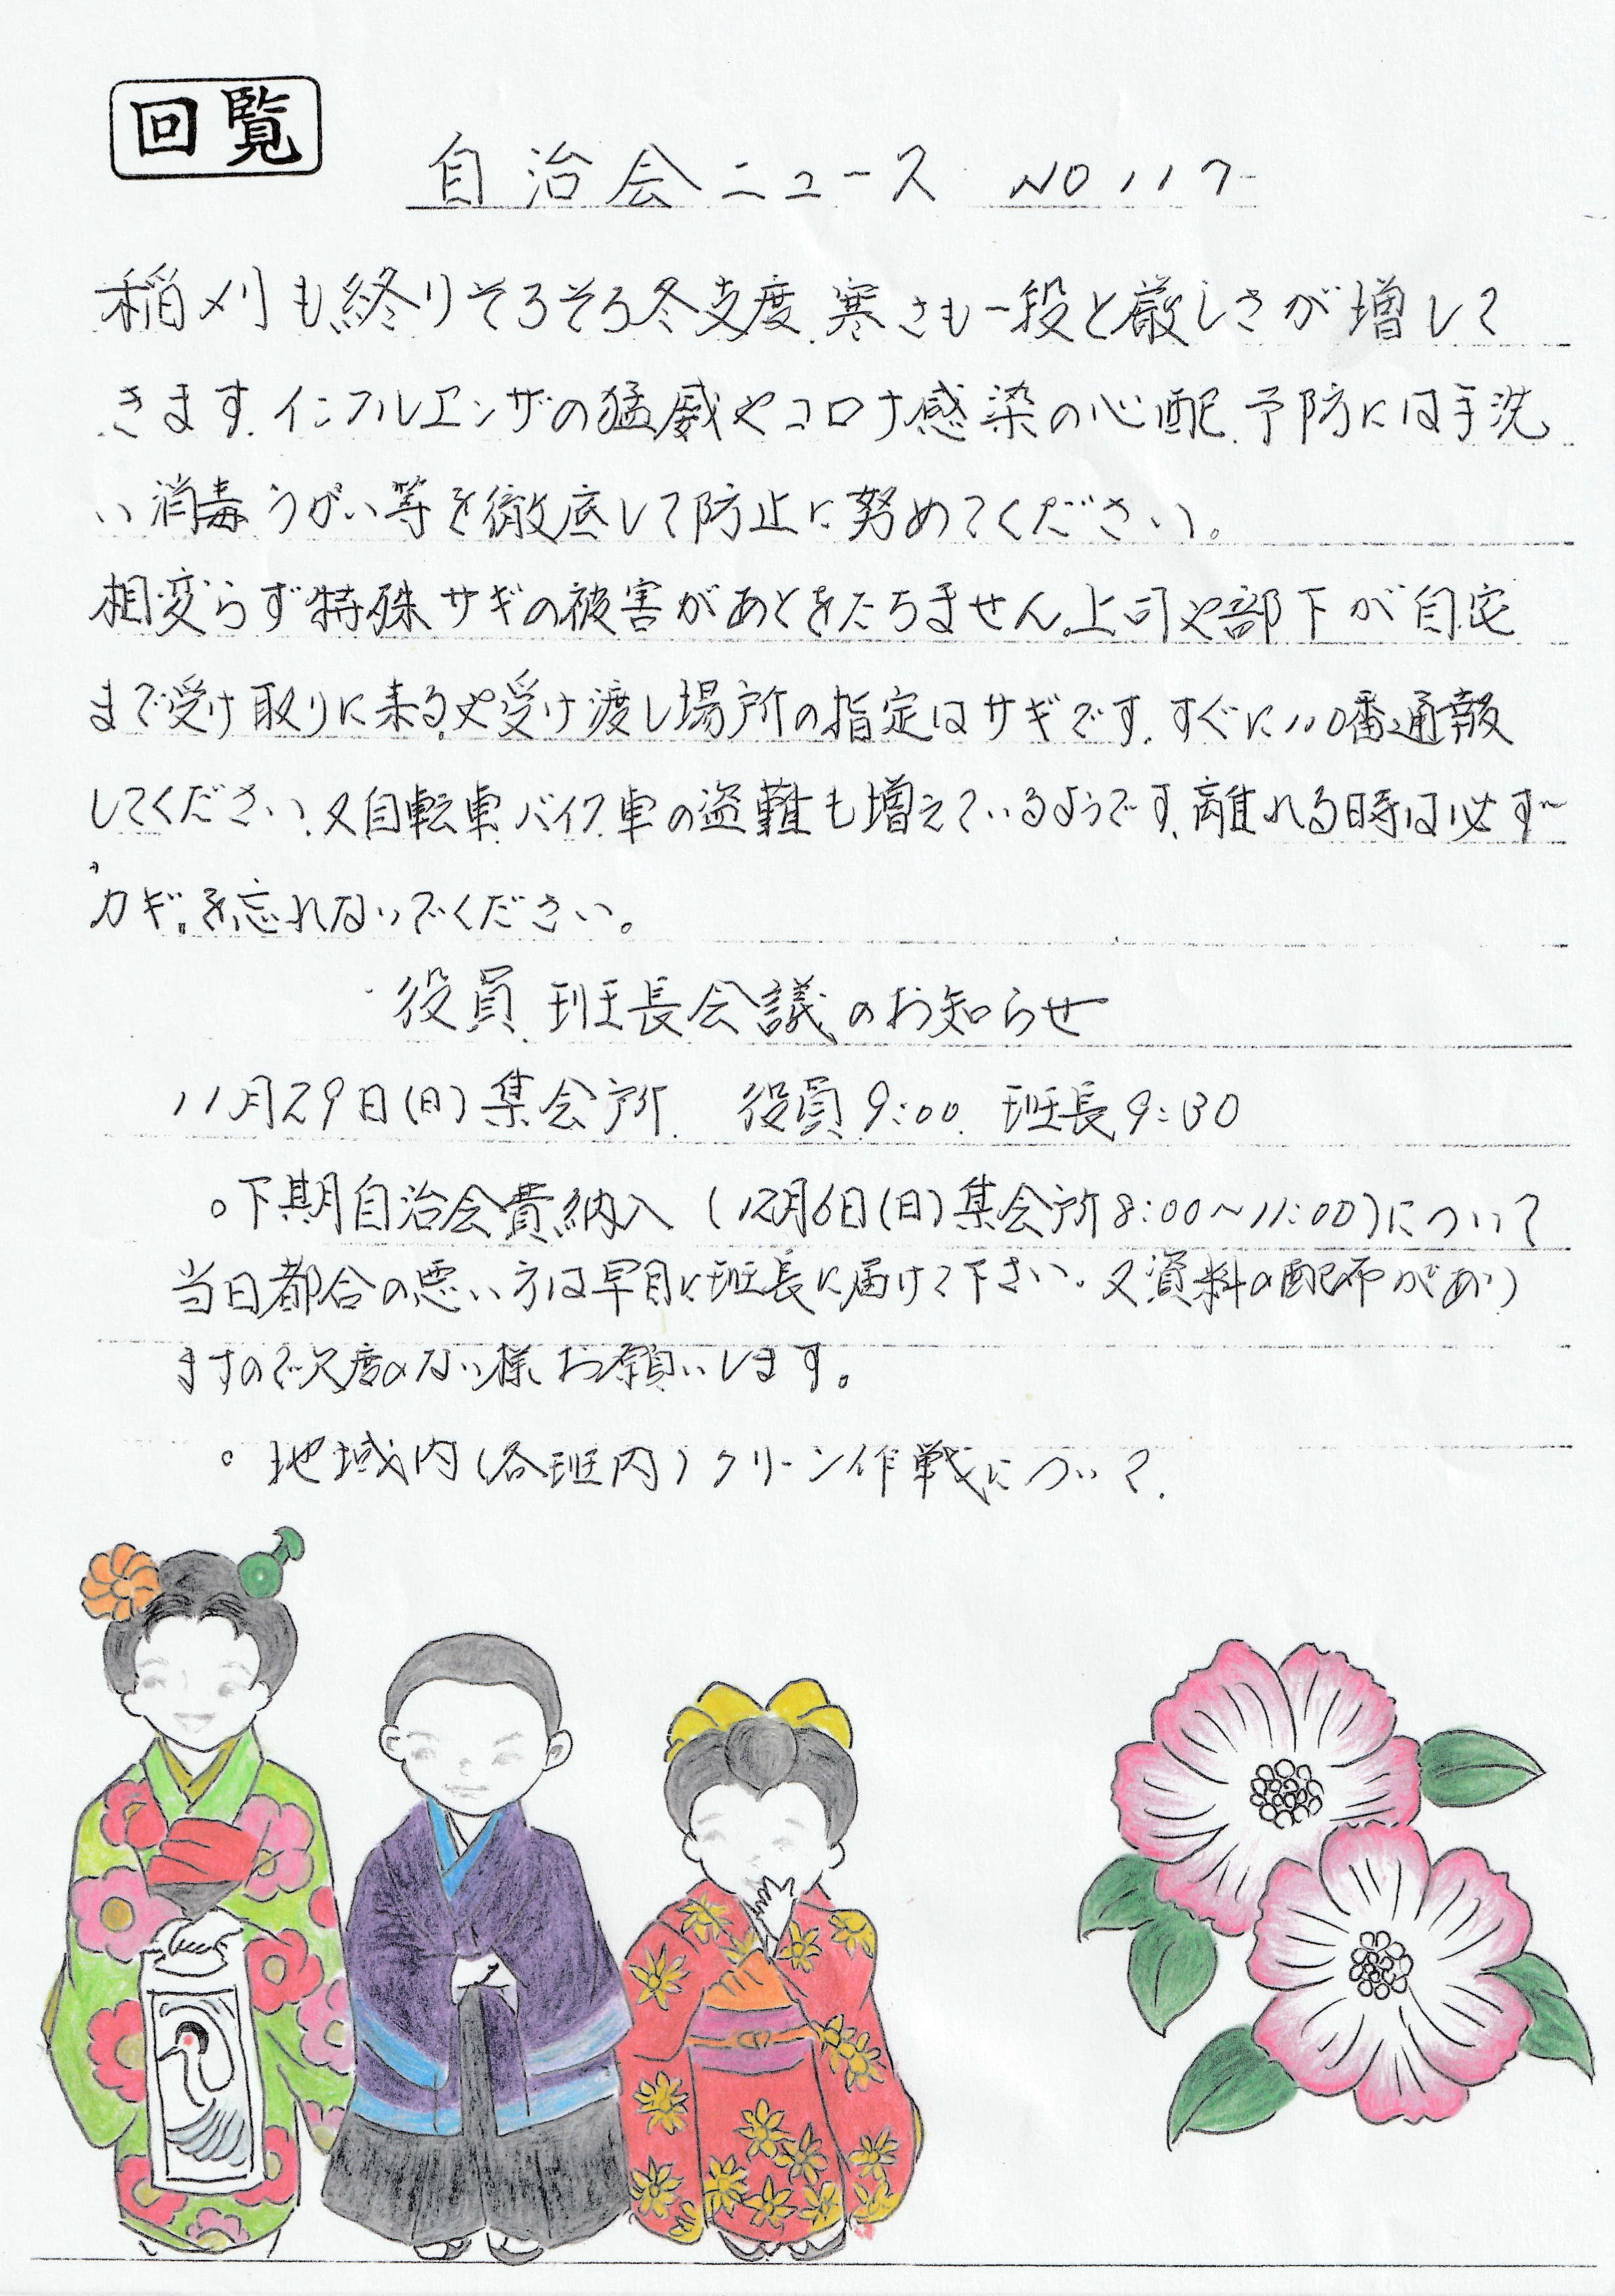 回覧
自治会ニュース NO117
稲刈も終りそろそろ冬支度、寒さも一段と厳しさが増して
きます。インフルエンザの猛威やコロナ感染の心配、予防には手洗
い消毒うがい等を徹底して防止に努めてください。
相変らず特殊サギの被害があとをたちません。上司や部下が自宅
まで受け取りに来るや受け渡し場所の指定はサギです、すぐに110番通報
してください、又自転車、バイク、車の盗難も増えているようです、離れる時は必ず
カギ。を忘れないでください。
役員、班長会議のお知らせ
11月29日(日)集会所 役員9:00 班長9:30
○下期自治会費納入(12月6日(日)集会所8:00~11:00)について
当日都合の悪い方は早目に班長に届けて下さい。又資料の配布があり
ますので欠席のない様お願いします。
○地域内(各班内)クリーン作戦について.